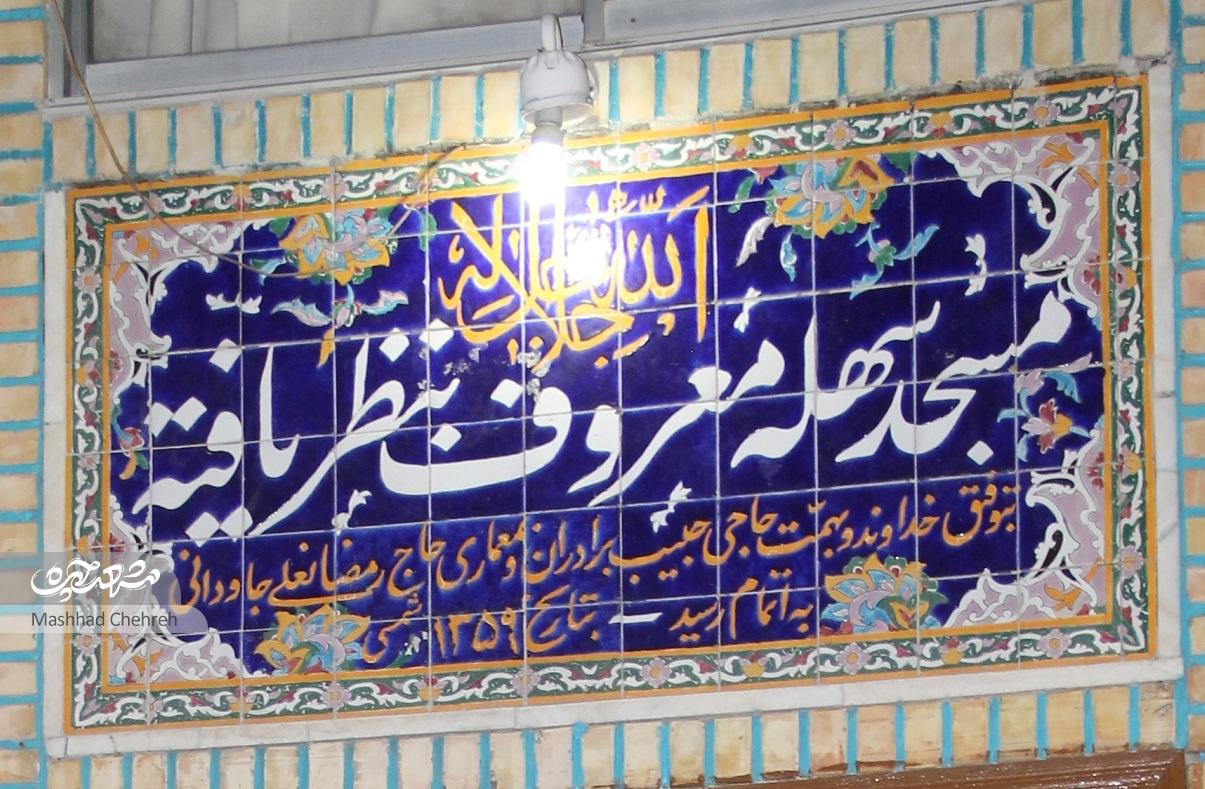 الله جل جلاله
مسجد سهله معروف بنظر یافته
بتوفیق خداوند و بهمّت حاجی حبیب برادران و معماری حاج رمضانعلی جاودانی
به اتمام رسید — بتاریخ ۱۳۵۹ شمسی
شهرآرا
Mashhad Chehreh